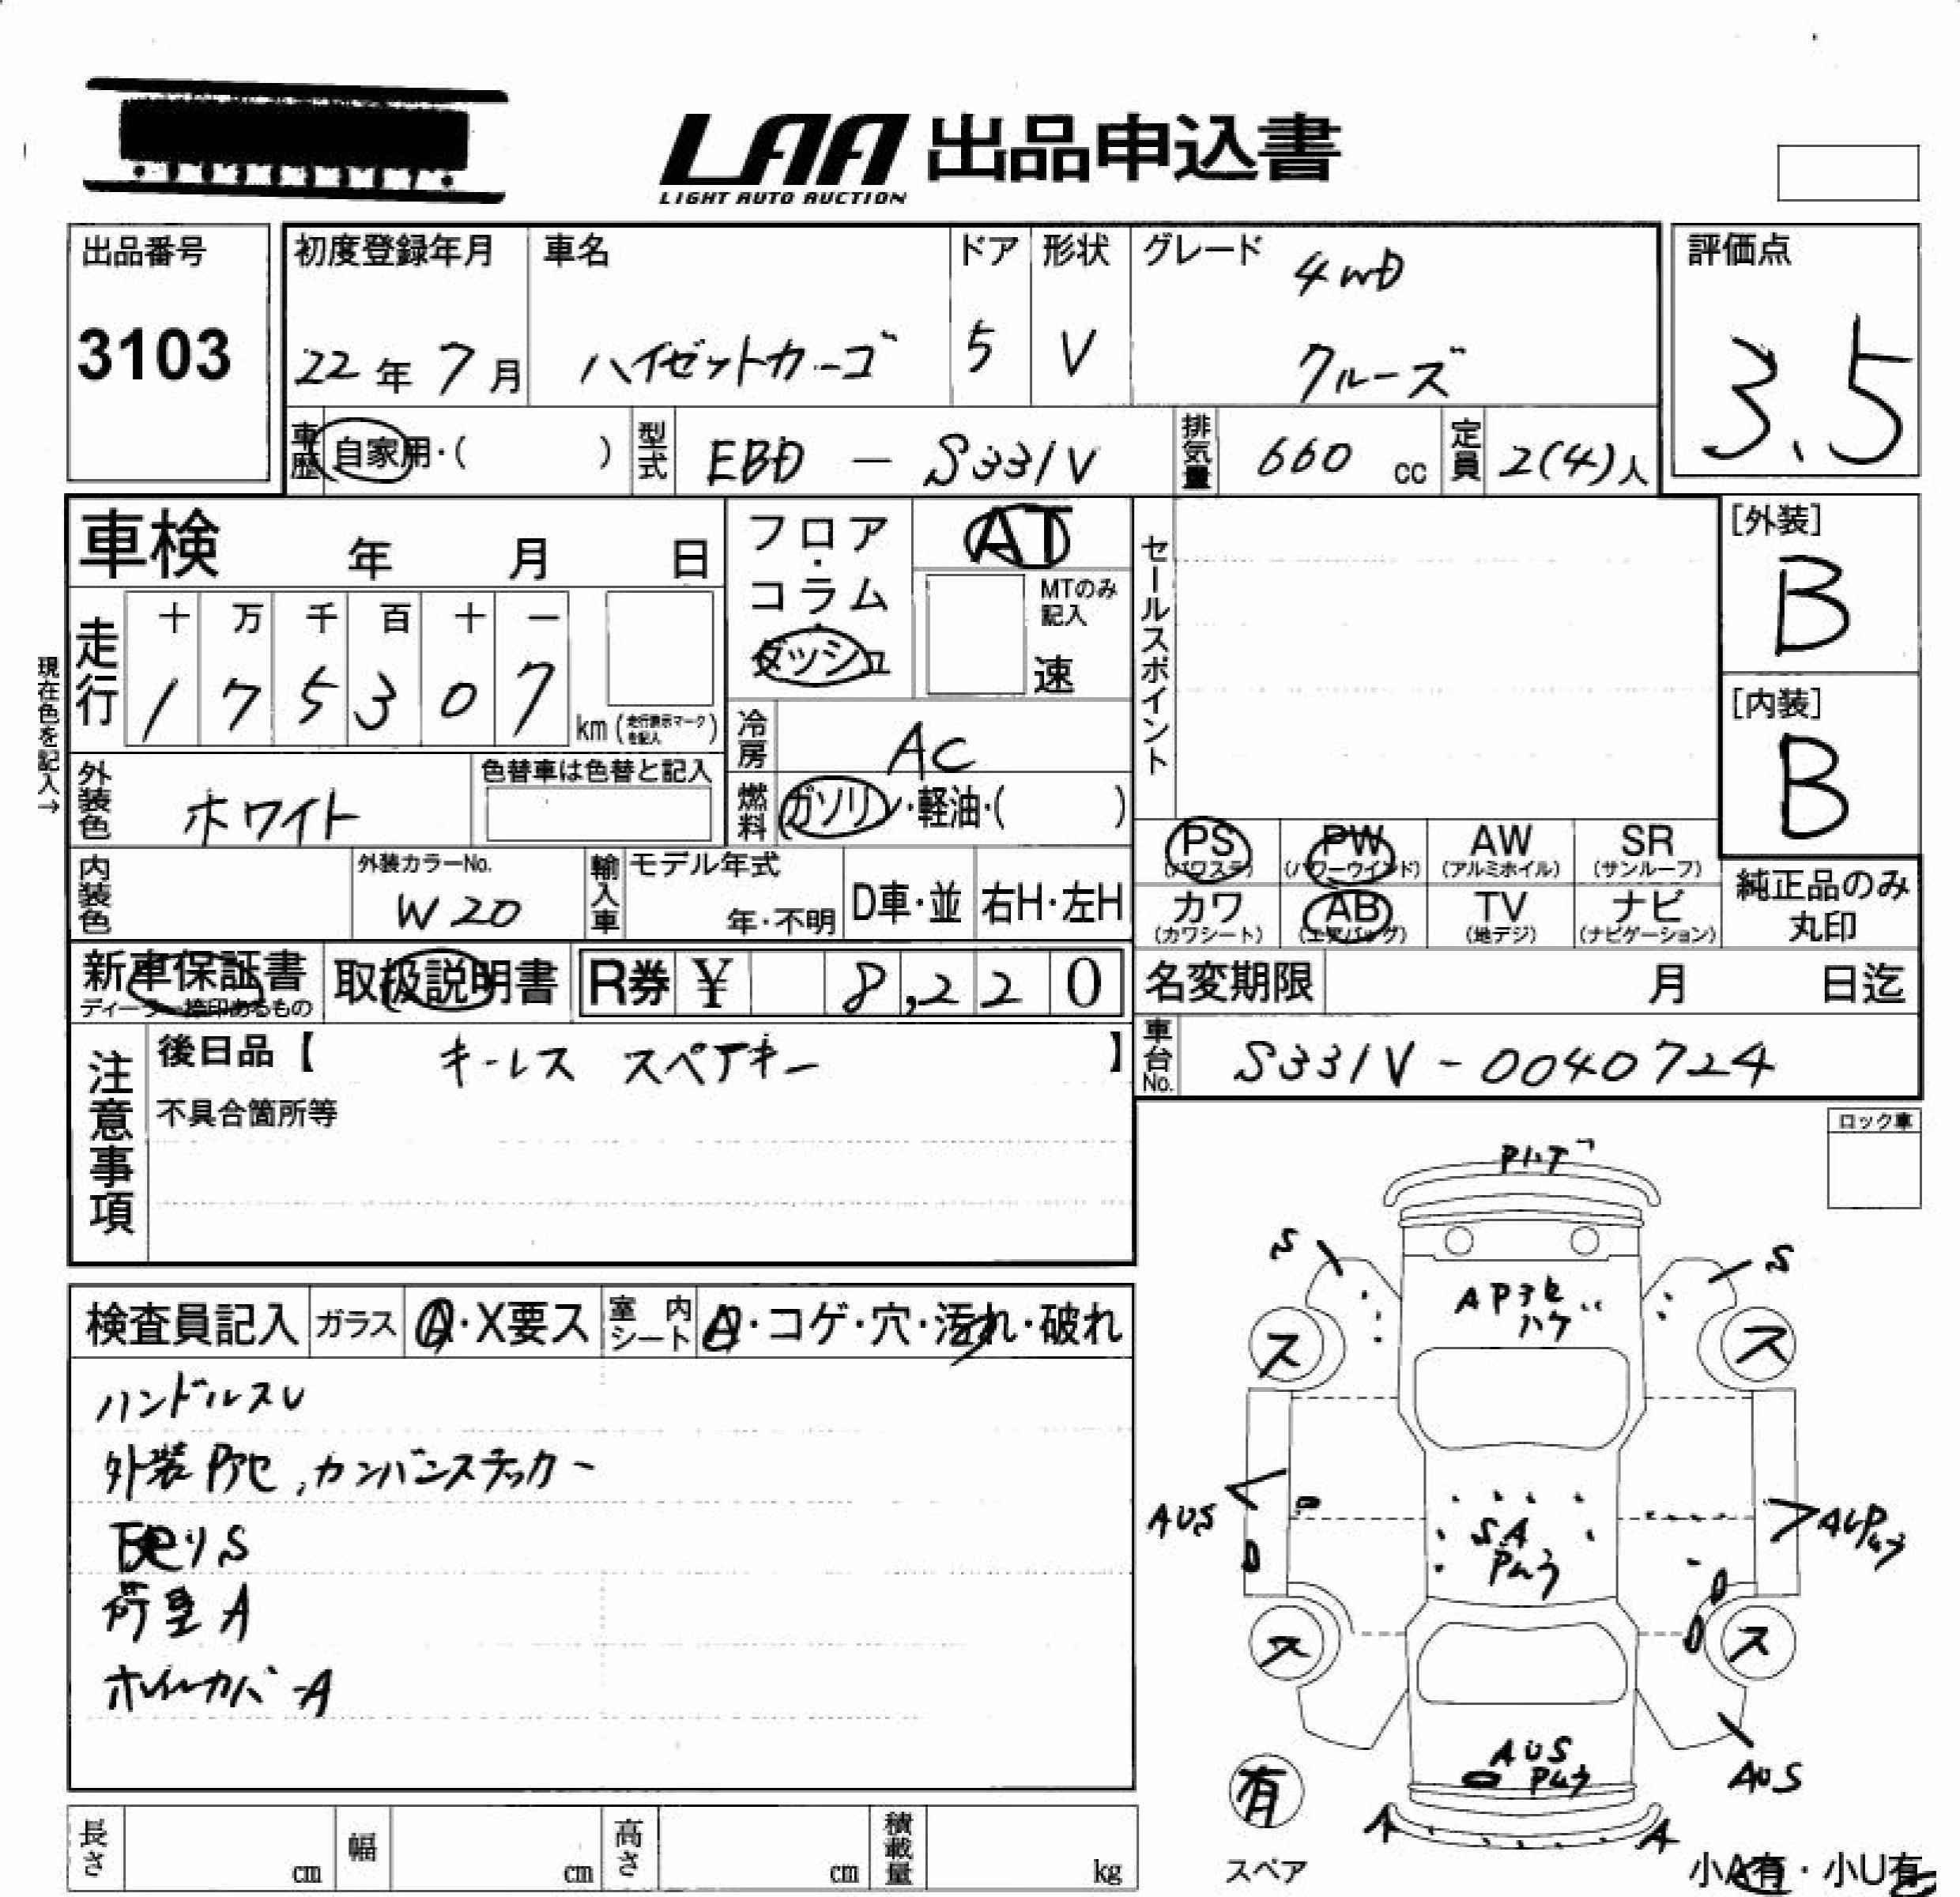 LAA 出品申込書
LIGHT AUTO AUCTION
出品番号
3103
初度登録年月
22年 7月
車名
ハイゼットカーゴ
ドア
5
形状
V
グレード
4WD
クルーズ
評価点
3.5
車歴 自家用・( )
型式 EBD - S331V
排気量 660 cc
定員 2(4)人
車検 年 月 日
フロア・
コラム
ダッシュ
AT
MTのみ
記入
速
セールスポイント
[外装]
B
[内装]
B
現在色を記入→
走行
十 万 千 百 十 一
1 7 5 3 0 7
km (走行表示マークを記入)
冷房 AC
燃料 ガソリン・軽油・( )
外装色 ホワイト
色替車は色替と記入
内装色
外装カラーNo.
W20
輸入車
モデル年式
年・不明
D車・並
右H・左H
PS
(パワステ)
PW
(パワーウインド)
AW
(アルミホイル)
SR
(サンルーフ)
カワ
(カワシート)
AB
(エアバッグ)
TV
(地デジ)
ナビ
(ナビゲーション)
純正品のみ
丸印
新車保証書
ディーラー捺印あるもの
取扱説明書
R券 ¥ 8,220
名変期限 月 日迄
車台No. S331V-0040724
注意事項
後日品【 キーレス スペアキー 】
不具合箇所等
ロック車
検査員記入
ガラス A・X要ス
室内シート A・コゲ・穴・汚れ・破れ
ハンドルスレ
外装Pアセ,カンバンステッカー
下廻りS
荷室A
ホイールカバーA
Pハゲ
S
S
APアセ
ハゲ
ス
ス
AUS
SA
Pムラ
ス
ス
AUS
Pムラ
AUS
A
A
有
スペア
小A有・小U有
長さ cm
幅 cm
高さ cm
積載量 kg